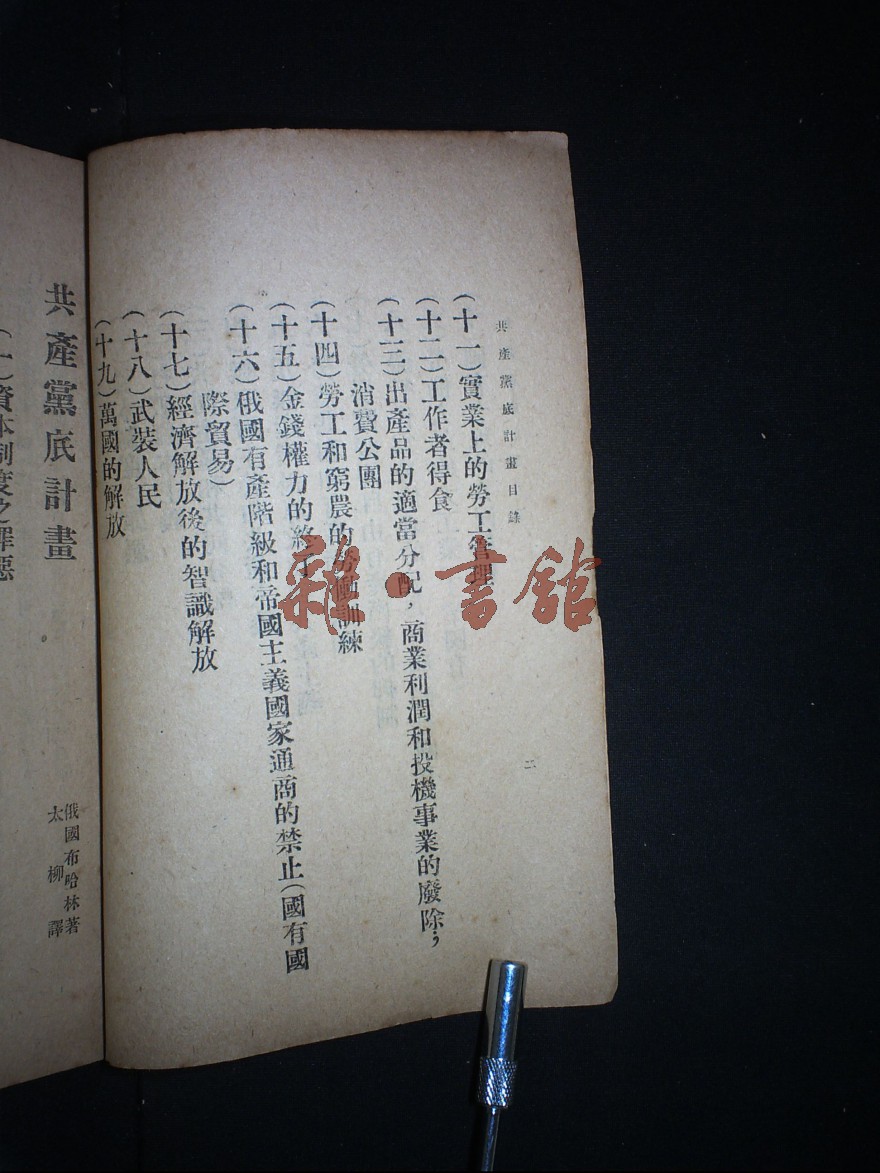 共產黨底計畫目錄
二
(十一)實業上的勞工管理
(十二)工作者得食
(十三)出產品的適當分配，商業利潤和投機事業的廢除；
消費公團
(十四)勞工和窮農的勞働訓練
(十五)金錢權力的終了
(十六)俄國有產階級和帝國主義國家通商的禁止(國有國
際貿易)
(十七)經濟解放後的智識解放
(十八)武裝人民
(十九)萬國的解放
共產黨底計畫
俄國布哈林著
太柳譯
(一)資本制度之罪惡
雜·書館